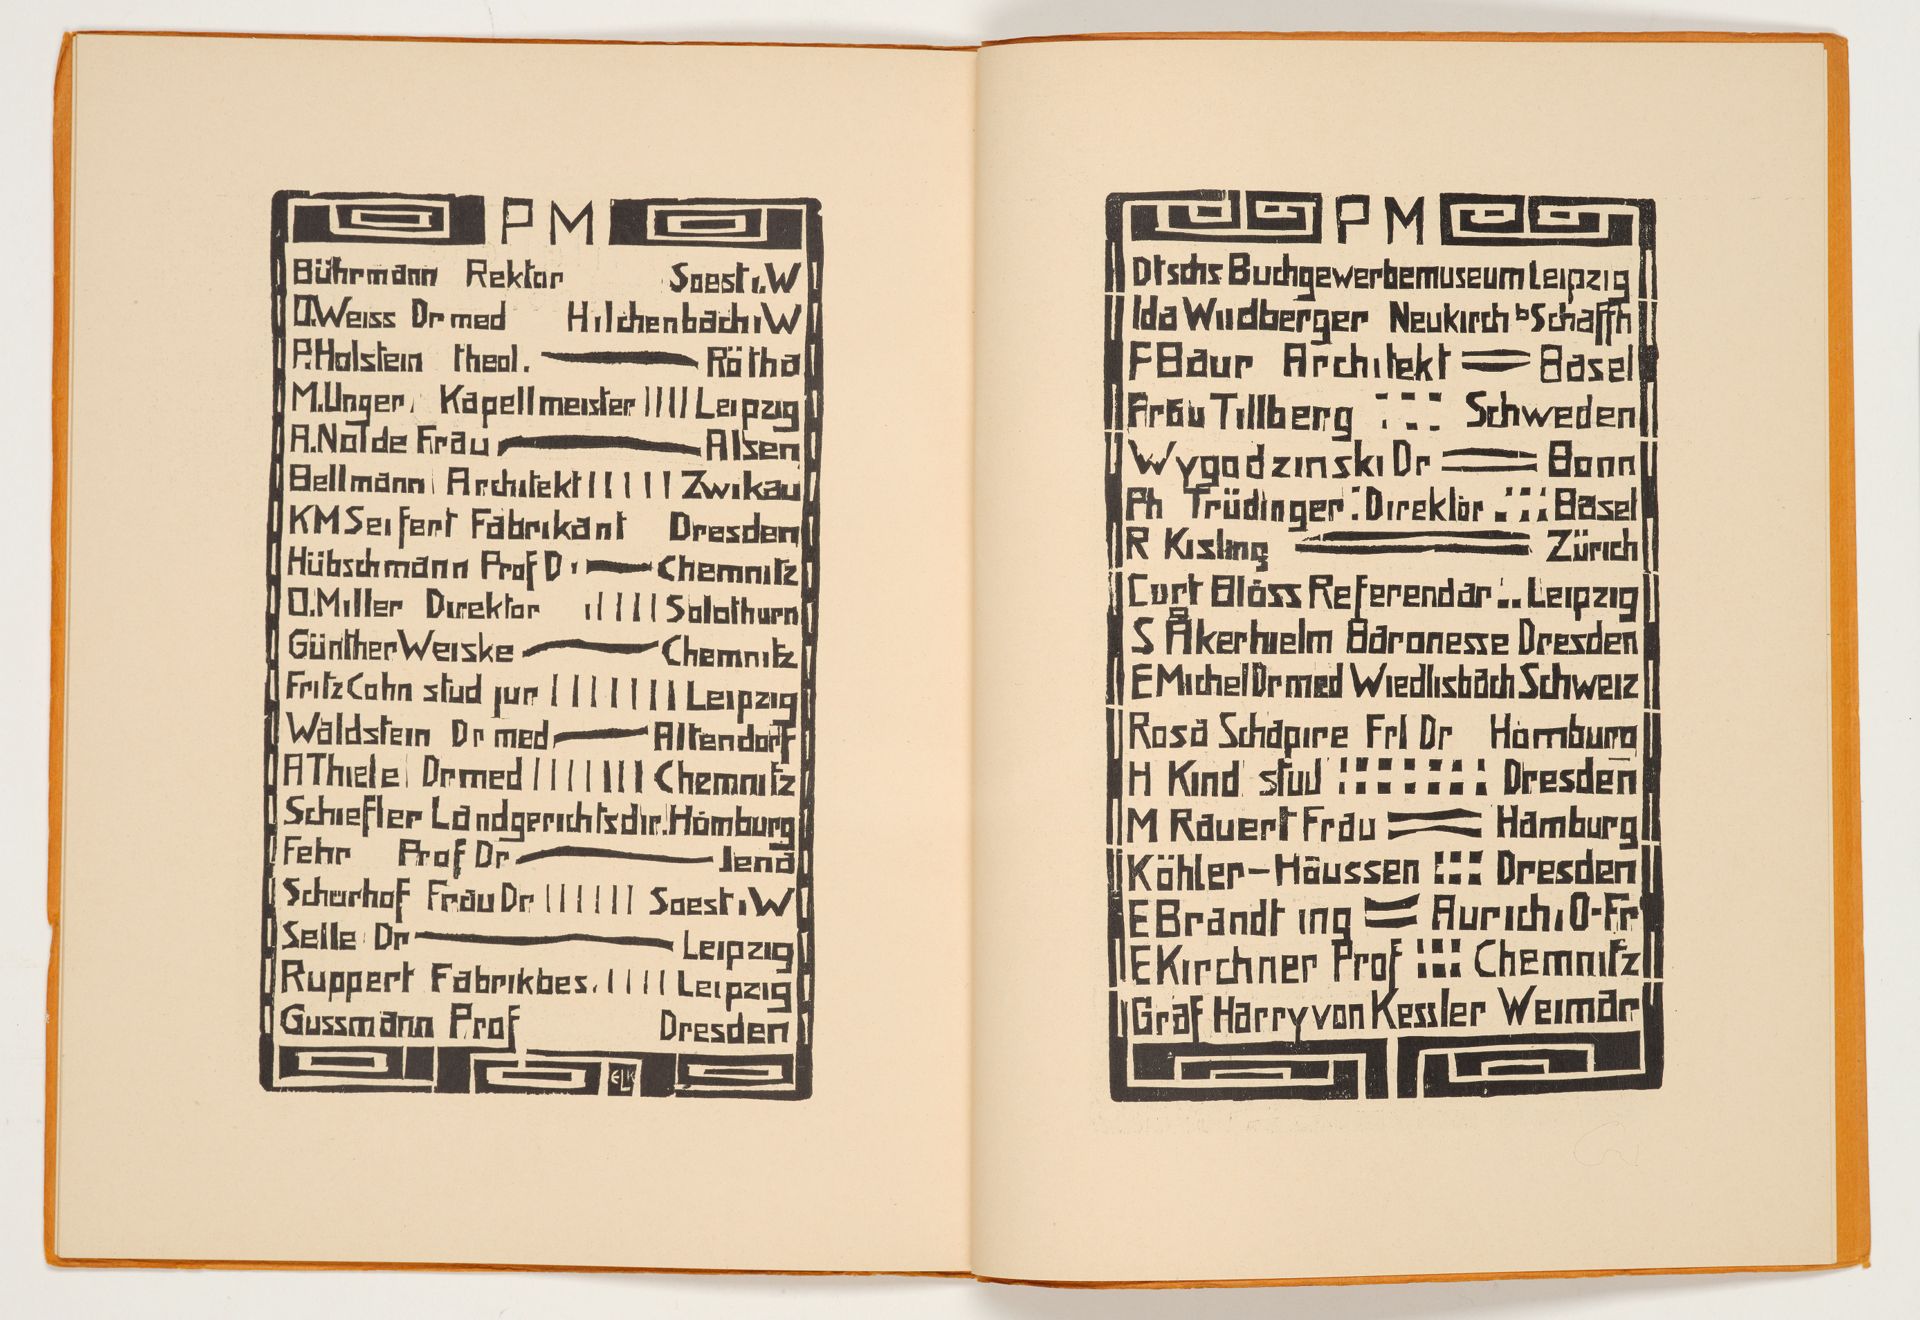 PM
Bührmann Rektor Soest i.W
O.Weiss Dr med Hilchenbach i W
P.Holstein theol. Rötha
M.Unger Kapellmeister Leipzig
A.Nolde Frau Alsen
Bellmann Architekt Zwikau
KM Seifert Fabrikant Dresden
Hübschmann Prof D Chemnitz
O.Miller Direktor Solothurn
Günther Weiske Chemnitz
Fritz Cohn stud jur Leipzig
Waldstein Dr med Altendorf
A Thiele Dr med Chemnitz
Schiefler Landgerichtsdir. Hamburg
Fehr Prof Dr Jena
Frau Dr Soest i W
Selle Dr Leipzig
Ruppert Fabrikbes. Leipzig
Gussmann Prof Dresden
ELK
PM
Dtschs Buchgewerbemuseum Leipzig
Ida Neukirch b Schaffh
F Baur Architekt Basel
Frau Tillberg Schweden
Wygodzinski Dr Bonn
Ph Trüdinger Direktor Basel
R Kisling Zürich
Curt Blöss Referendar Leipzig
S Åkerhielm Baronesse Dresden
E Michel Dr med Wiedlisbach Schweiz
Rosa Schapire Frl Dr Hamburg
H Kind stud Dresden
M Rauert Frau Hamburg
Köhler-Häussen Dresden
E Brandt ing Aurich i O-Fr
E Kirchner Prof Chemnitz
Graf Harry von Kessler Weimar